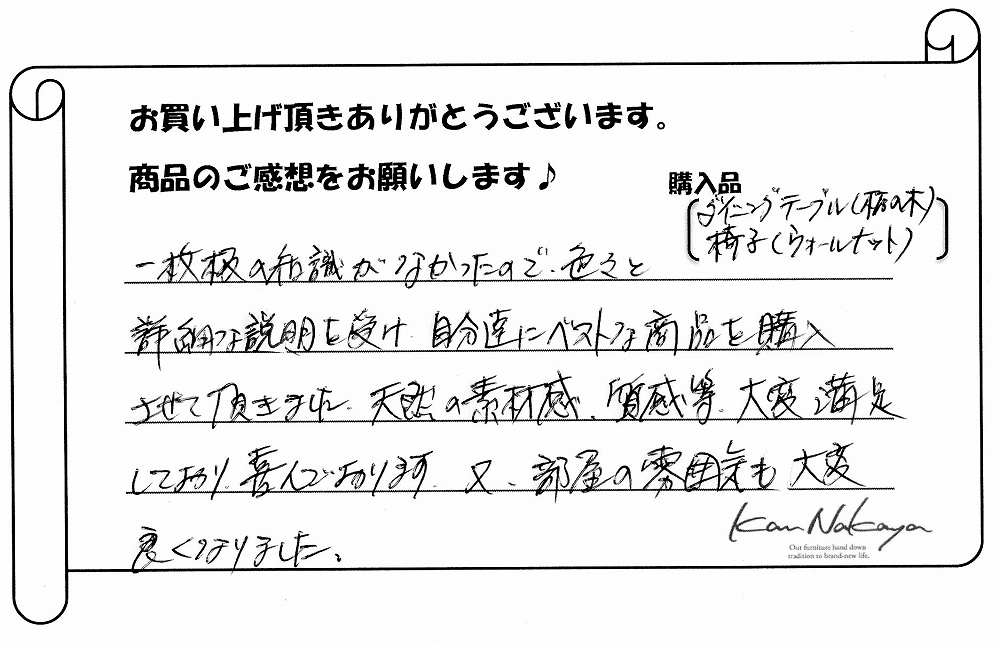 お買い上げ頂きありがとうございます。
商品のご感想をお願いします♪
購入品
ダイニングテーブル(栃の木)
椅子(ウォールナット)
一枚板の知識がなかったので、色々と
詳細な説明を受け、自分達にベストな商品を購入
させて頂きました。天然の素材感、質感等、大変満足
しており、喜んでおります。又、部屋の雰囲気も大変
良くなりました。
Kan Nakaya
Our furniture hand down
tradition to brand-new life.